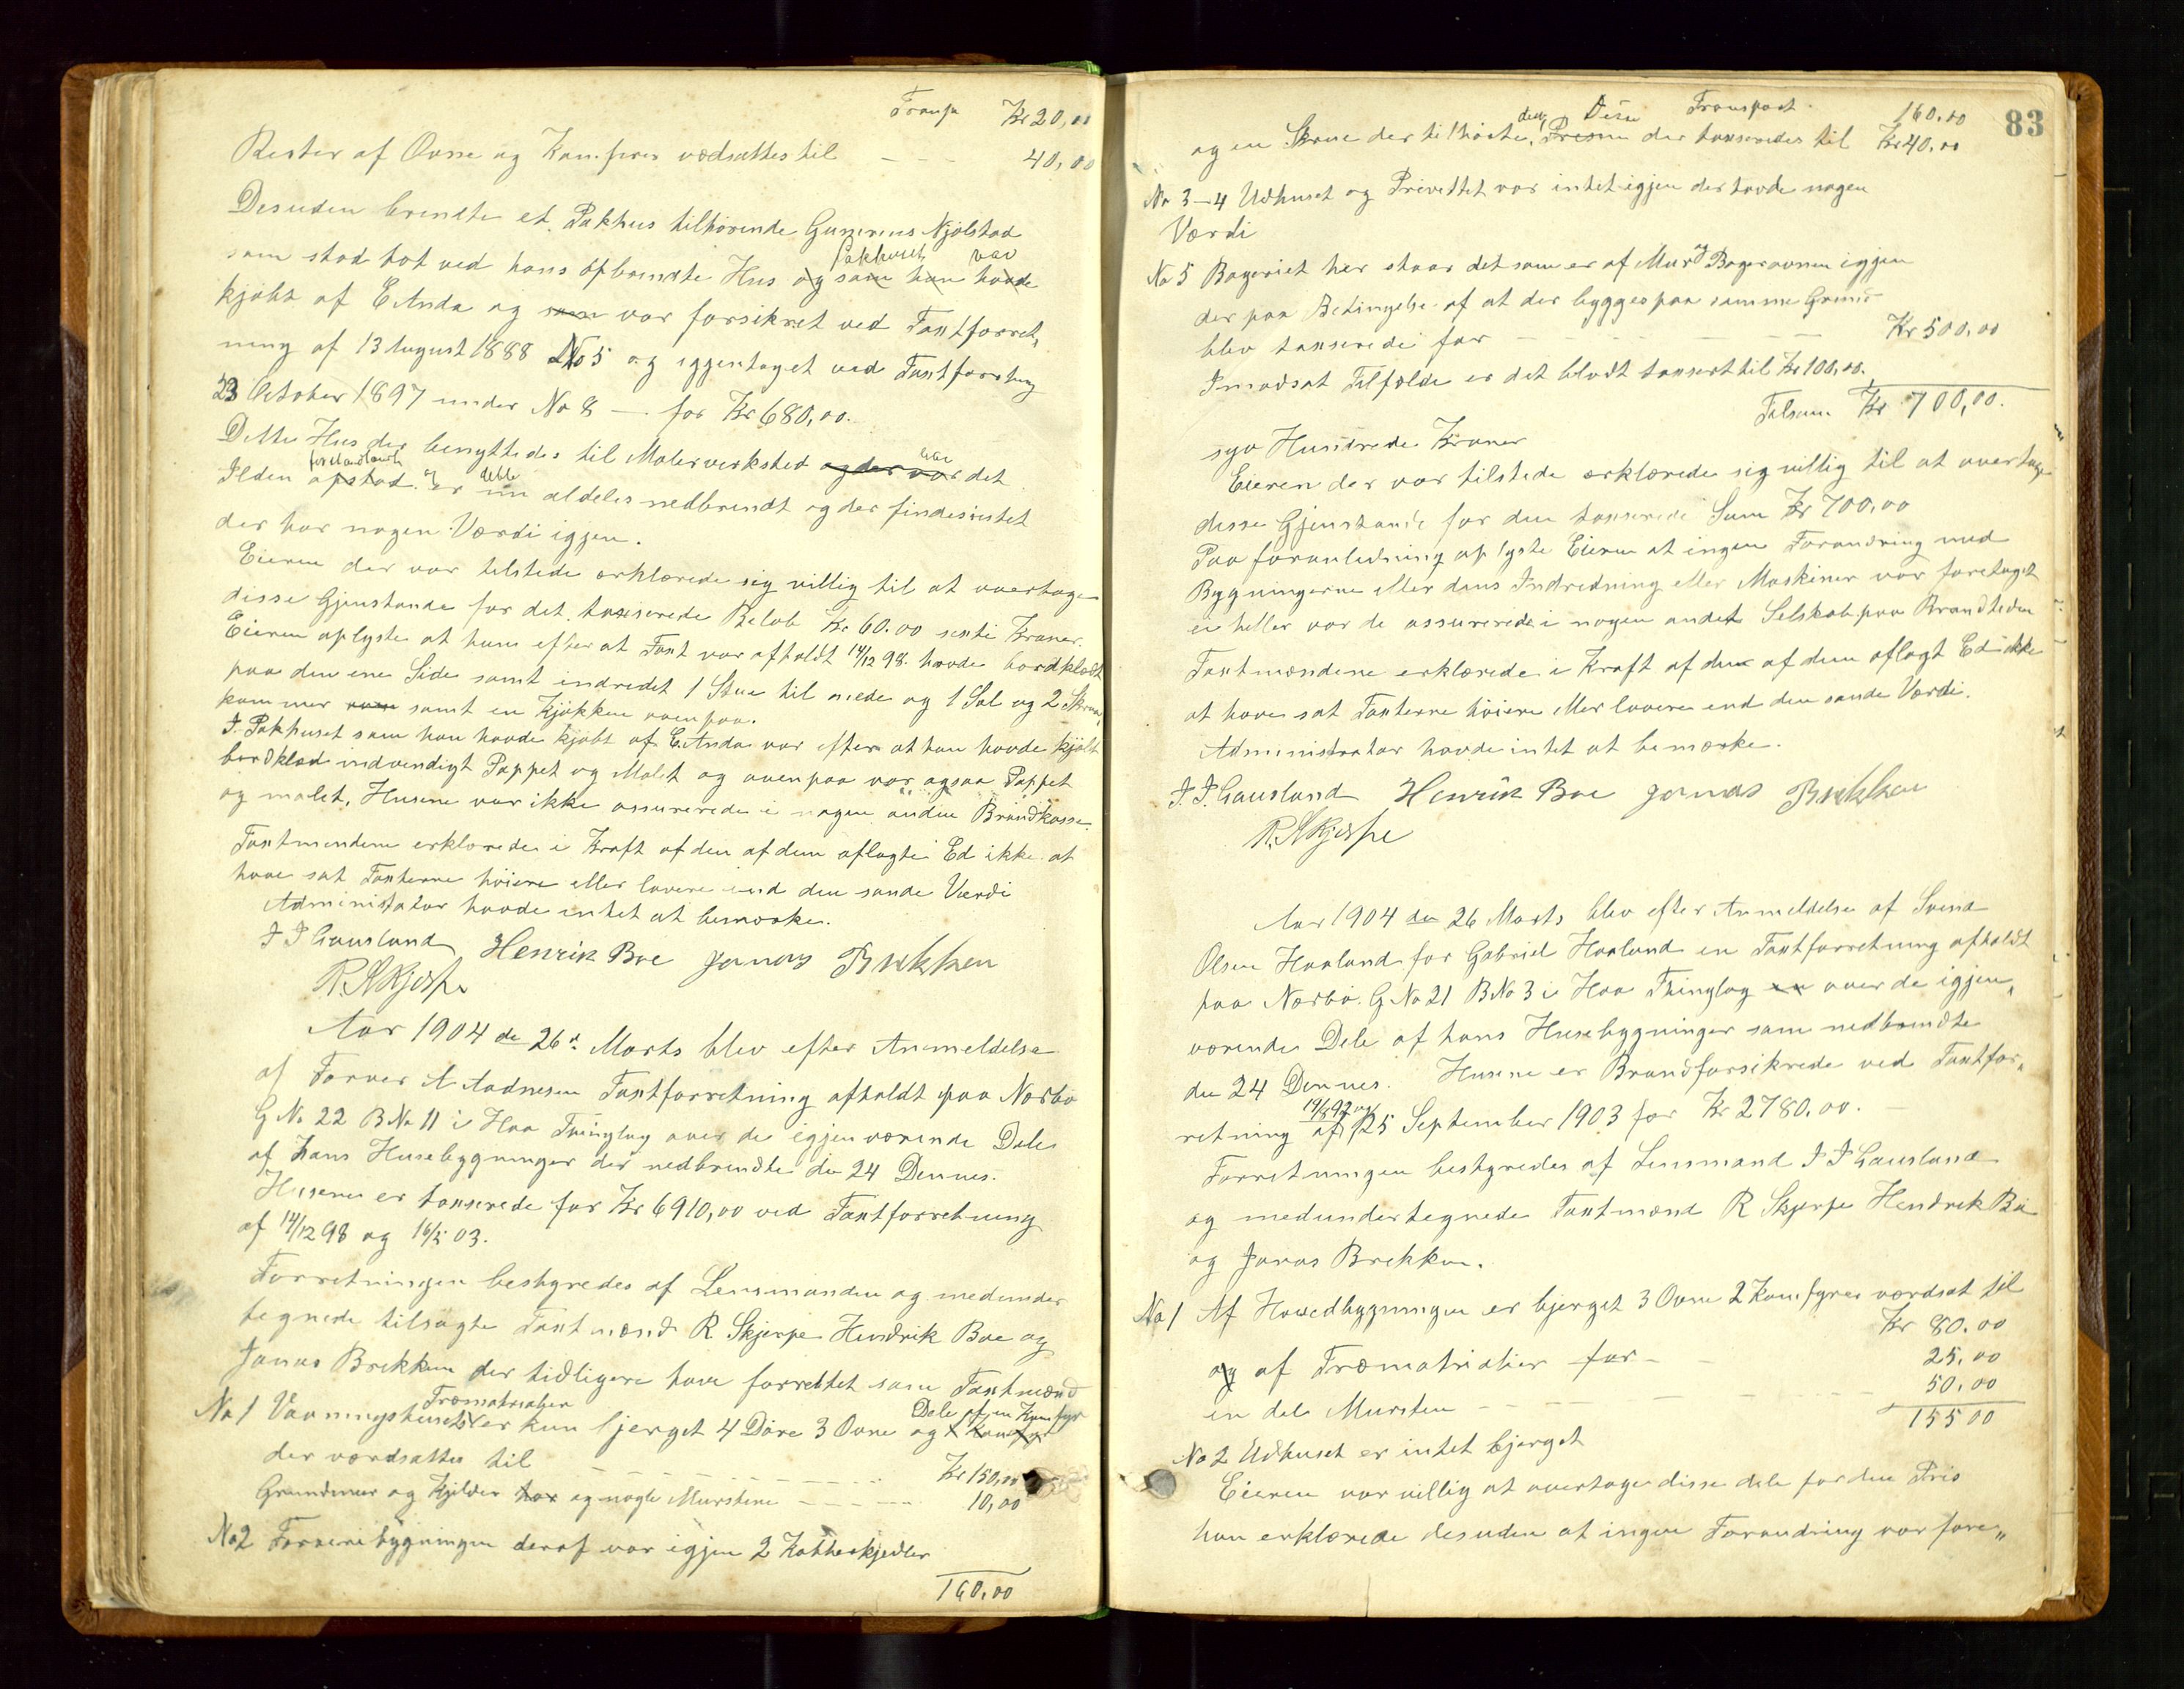 Transp Kr 20,00
Rester af Ovne og Komfurer værdsattes til - - - 40,00
Desuden brendte et Pakhus tilhørende Gunerius Njølstad
som stod tat ved hans opbrendte Hus og som han havde
Pakhuset var
kjøbt af E Anda og som var forsikret ved Taxtforret,
ning af 13 August 1888 No 5 og iggentaget ved Taxtforretng
23 October 1897 under No 8 — for Kr 680,00.
Dette Hus der benyttedes til Malerverksted og der var det
Ilden opstod. er nu aldeles nedbrendt og der findes intet
og dette
der har nogen Værdi iggen.
Eieren der var tilstede erklærede sig villig til at overtage
disse Gjenstande for det taxserede Beløb Kr 60.00 sexti Kroner.
Eieren oplyste at han efter at Taxt var afholdt 14/12 98. havde bordklædt
paa den ene Side samt indredet 1 Stue til nede og 1 Sal og 2 Skraa,
kammer samt en Kjøkken ovenpaa.
I Pakhuset som han havde kjøbt af E. Anda var efter at han havde kjøbt
bordklæd indvendigt Pappet og Malet og ovenpaa var ogsaa Pappet
og malet. Husene var ikke assurerede i nogen anden Brandkasse.
Taxtmendene erklærede i Kraft af den af dem aflagte Ed ikke at
have sat Taxterne høiere eller lavere end den sande Værdi
Administrator havde intet at bemærke.
J J Gausland Henrik Boe Jonas Brekken
R. Skjerpe
Aar 1904 den 26de Marts blev efter Anmeldelse
af Farver A Aadnesen Taxtforretning afholdt paa Nærbø
G No 22 B No 11 i Haa Thinglag over de igjenværende Dele
af Hans Husebygninger der nedbrendte den 24 Dennes.
Husene er taxserede for Kr 6910,00 ved Taxtforretning
af 14/12 98 og 16/5 03.
Forretningen bestyredes af Lensmanden og medunder
tegnede tilsagte Taxtmænd R. Skjerpe Hendrik Boe og
Jonas Brekken der tidligere have forrettet som Taxtmænd
No 1 Vaaningshuset er kun bjerget 4 Døre 3 Ovne og 1 Komfyr
Træmatrialier Dele af en Komfyr
der værdsattes til - - - Kr 150,00
Grundmur og Kjelder har og nogle Murstene - - - - 10,00
No 2 Farveribygningen deraf var igjen 2 Kobberkjedler
160,00
83
Transport. 160.00
og en Skrue der tilhørte, Presen der taxseredes til Kr 40,00
den Desu
No 3–4 Udhuset og Privedtet var intet igjen der havde nogen
Værdi
No 5 Bageriet her staar det som er af Mur og Bagerovnen iggjen
der paa Betingelse af at der bygges paa samme Grund
blev taxserede for - - - Kr 500,00
I modsat Tilfælde er det blodt taxsert til Kr 100,00.
Tilsam. Kr 700,00.
syv Hundrede Kroner
Eieren der var tilstede erklærede sig villig til at overtage
disse Gjenstande for den taxserede Sum Kr 700,00
Paa foranledning oplyste Eieren at ingen Forandring med
Bygningerne eller dens Indredning eller Maskiner var foretaget
ei heller var de assurerede i nogen andet Selskab paa Brandtiden
Taxtmændene erklærede i Kraft af den af dem aflagt Ed ikke
at have sat Taxterne høiere eller lavere end den sande Værdi.
Administrator havde intet at bemærke.
J. J. Gausland Henrik Boe Jonas Brekken
R. Skjerpe
Aar 1904 den 26 Marts blev efter Anmeldelse af Svend
Olsen Haaland for Gabriel Haaland en Taxtforretning afholdt
paa Nærbø. G No 21 B No 3 i Haa Thinglag over de igjen,,
værende Dele af hans Husebygninger som nedbrendte
den 24 Dennes. Husene er Brandforsikrede ved Taxtfor,,
19/8 97 og
retning af 25 September 1903 for Kr 2780.00. —
Forretningen bestyredes af Lensmand J J Gausland
og medundertegnede Taxtmænd R Skjerpe Hendrik Bø
og Jonas Brekken.
No 1 Af Hovedbygningen er bjerget 3 Ovne 2 Komfyrer værdsat til
Kr 80.00
og af Træmatrialier for - - 25,00
en del Mursten - - - 50,00
155 00
No 2 Udhuset er intet bjerget
Eieren var villig at overtage disse dele for den Pris
han erklærede desuden at ingen Forandring var fore,,